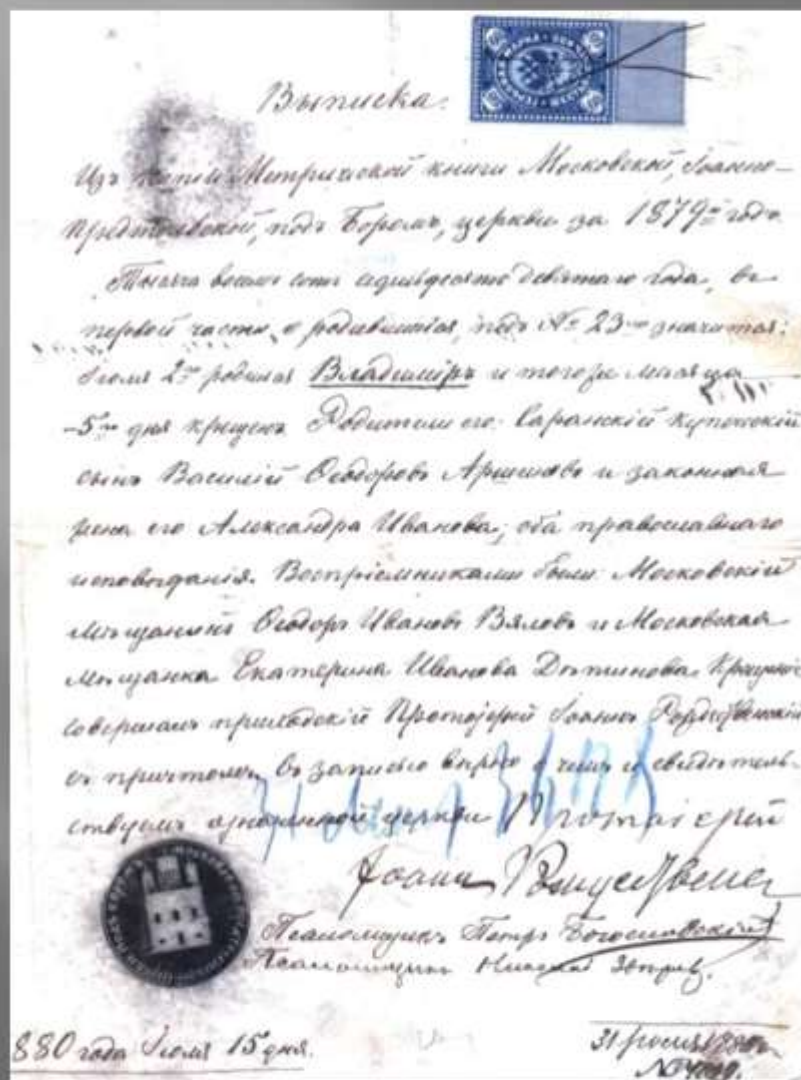 Выписка.
Изъ копіи Метрической книги Московской, Іоанно-
Предтечевской, подъ Боромъ, церкви за 1879й годъ
Тысяча восемь сотъ семьдесятъ девятаго года, въ
первой части, о родившихся, подъ № 23мъ значится:
Іюля 2го родился Владиміръ и тогоже мѣсяца
5го дня крещенъ. Родители его: Саранскій купеческій
сынъ Василій Ѳеодоровъ Аршиновъ и законная
жена его Александра Иванова; оба православнаго
исповѣданія. Воспріемниками были: Московскій
Мѣщанинъ Ѳеодоръ Ивановъ Вяловъ и Московская
Мѣщанка Екатерина Иванова Крещеніе
совершалъ приходскій Протоіерей Іоаннъ Рождественскій
съ причтомъ. Съ записью вѣрно о чемъ и свидѣтель-
ствуемъ церкви Протоіерей
Іоаннъ Рождественскій
Псаломщикъ Петръ Богословскій
Псаломщикъ Николай
880 года Іюля 15 дня.
31 1880
№